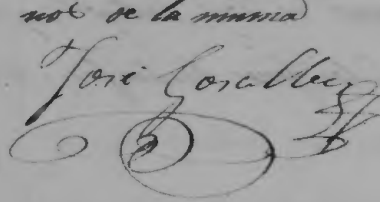 nos de la misma
José Gosalbez